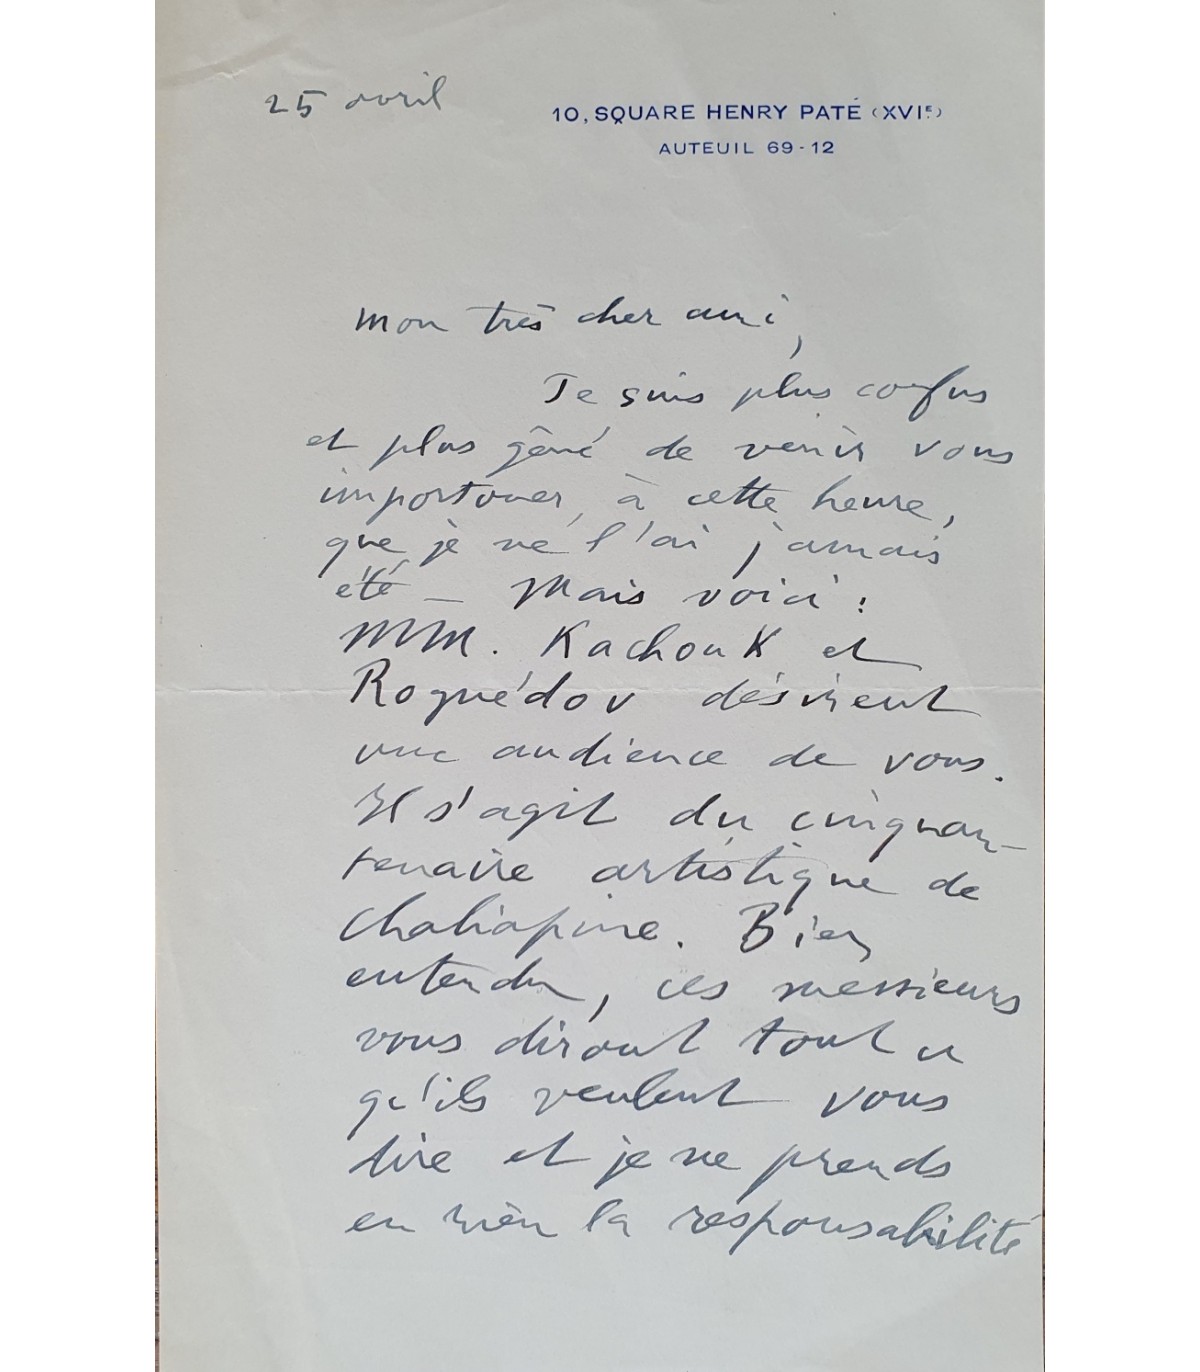 25 avril
10, SQUARE HENRY PATÉ (XVIE)
AUTEUIL 69-12
Mon très cher ami,
Je suis plus confus
et plus gêné de venir vous
importuner, à cette heure,
que je ne l'ai jamais
été — Mais voici :
MM. Kachouk et
Roguédov désirent
une audience de vous.
Il s'agit du cinquan-
tenaire artistique de
Chaliapine. Bien
entendu, ces messieurs
vous diront tout ce
qu'ils veulent vous
dire et je ne prends
en rien la responsabilité